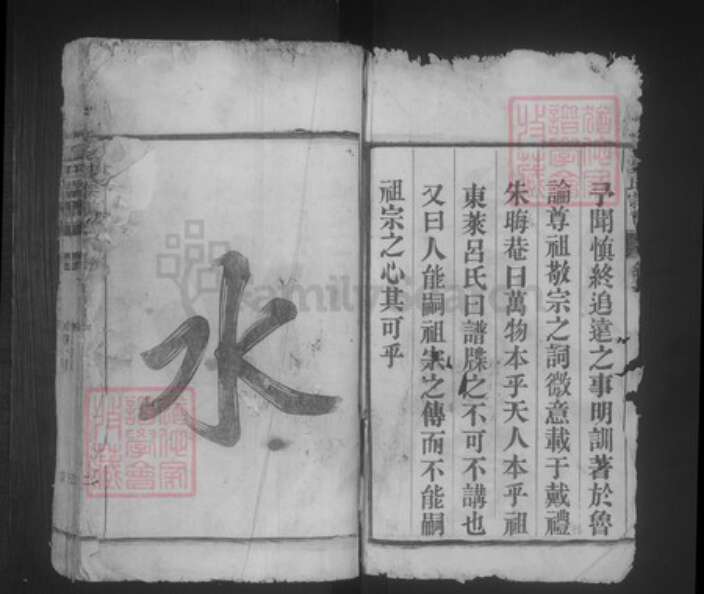 予聞慎終追遠之事明訓著於魯
論尊祖敬宗之詞微意載于戴禮
朱晦菴曰萬物本乎天人本乎祖
東萊呂氏曰譜牒之不可不講也
又曰人能嗣祖宗之傳而不能嗣
祖宗之心其可乎
水
FamilySearch